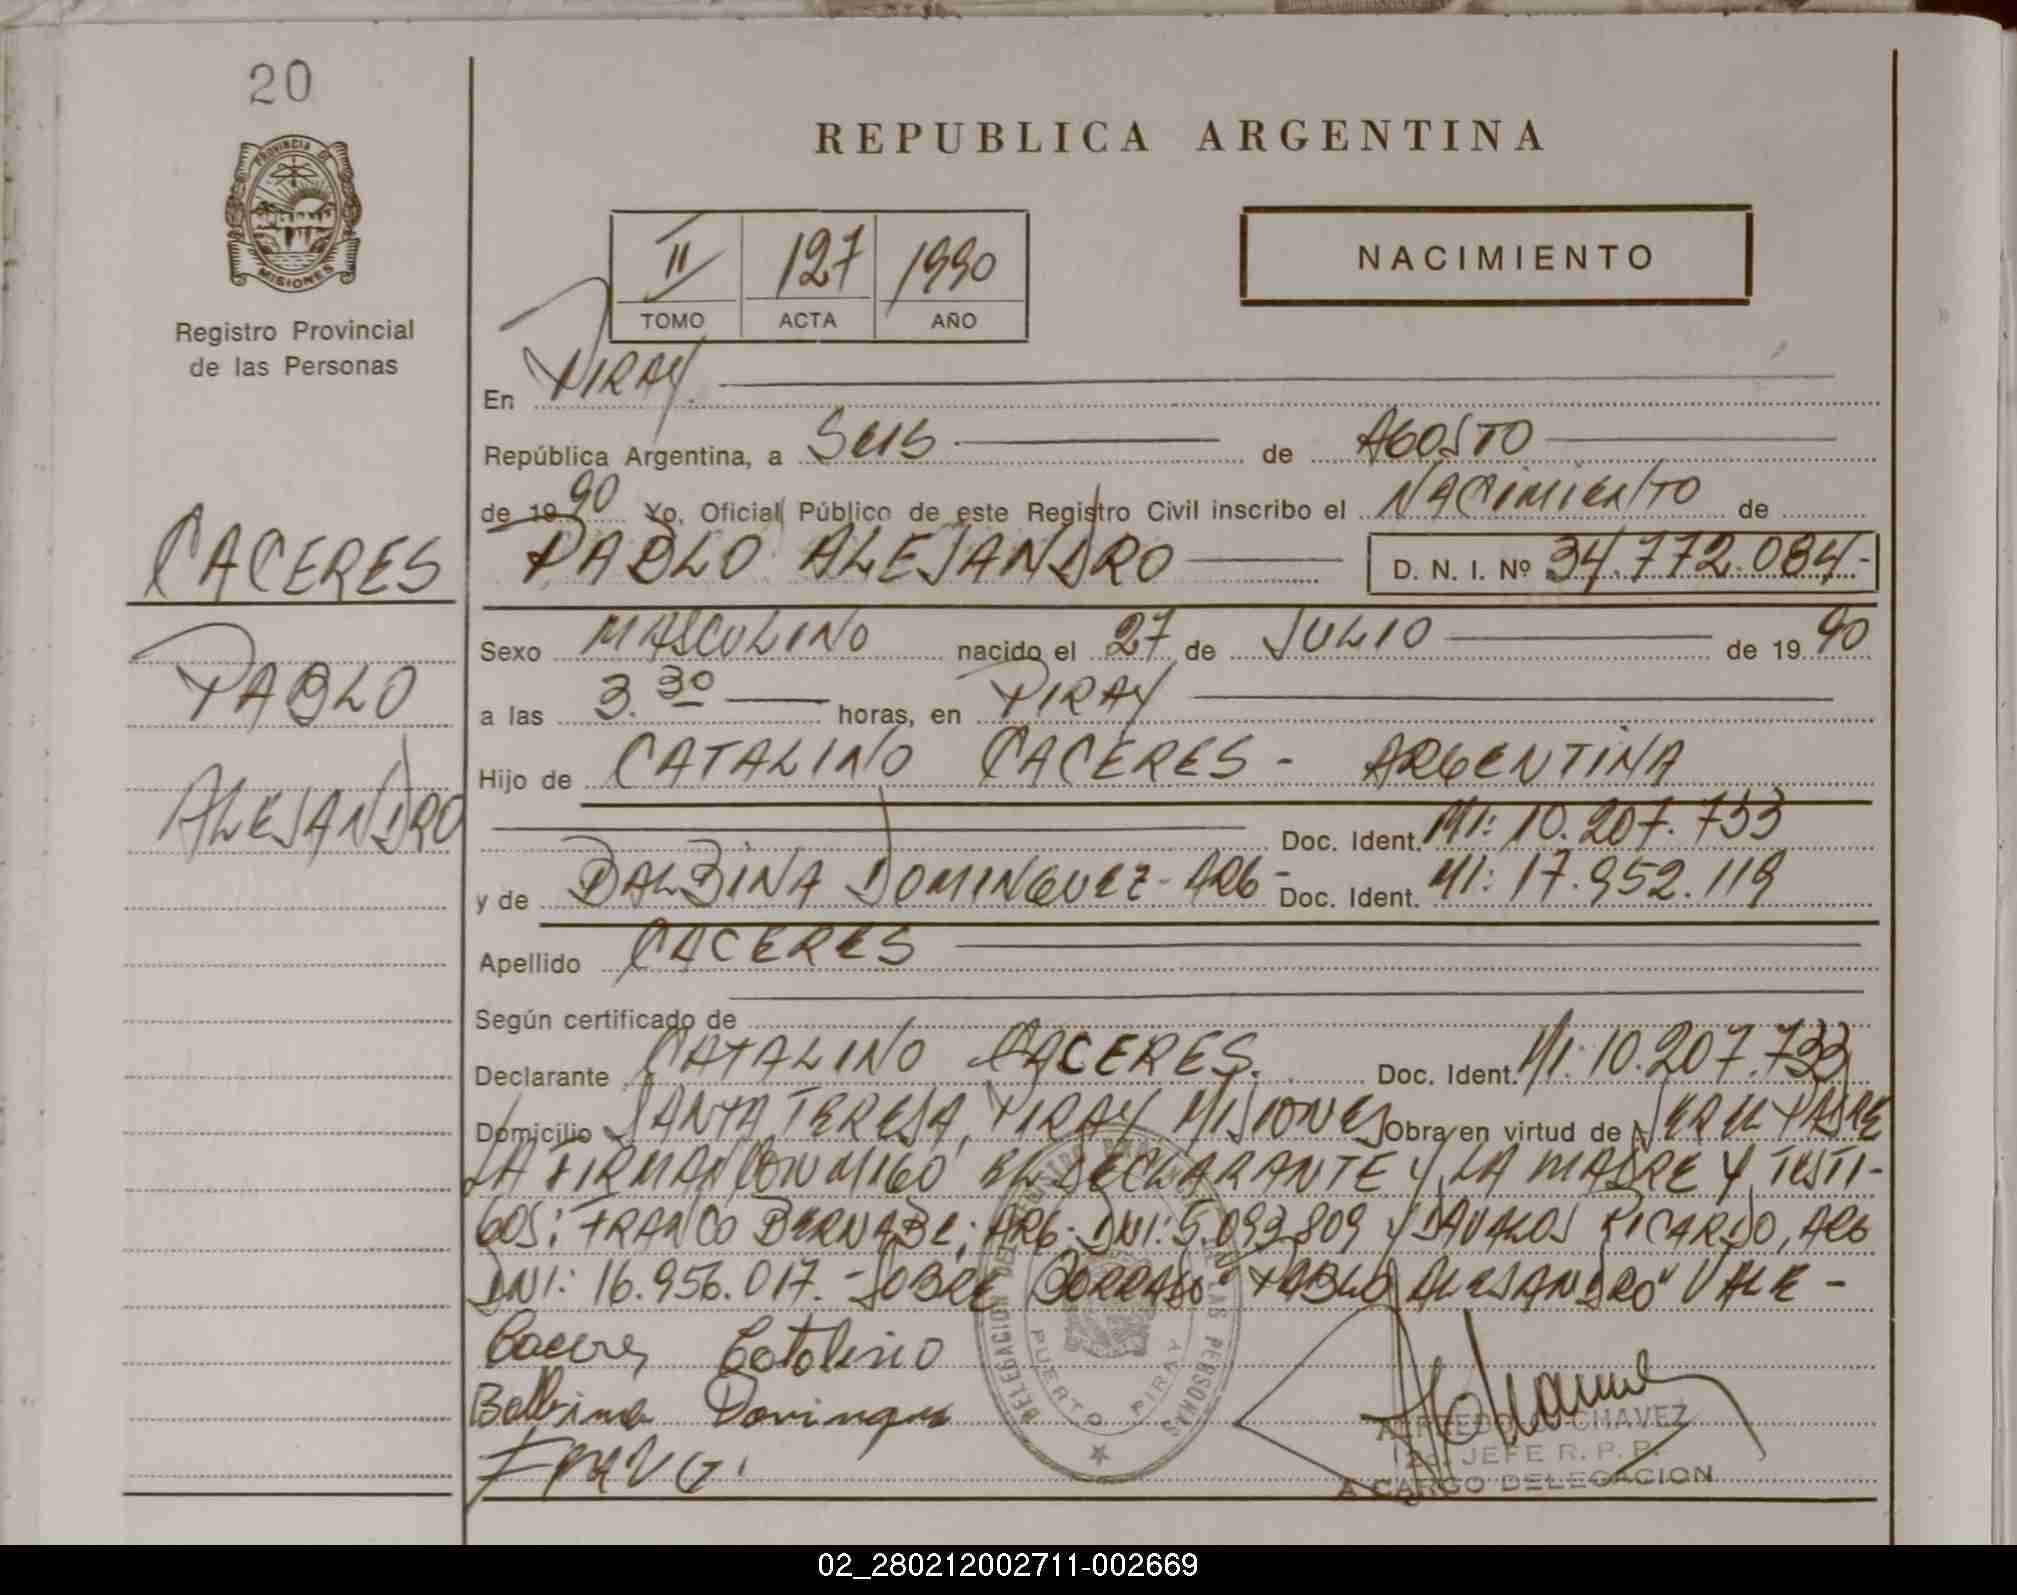 20
PROVINCIA DE
MISIONES
Registro Provincial
de las Personas
REPUBLICA ARGENTINA
II 127 1990
TOMO ACTA AÑO
NACIMIENTO
En PIRAY
República Argentina, a SEIS de AGOSTO
de 1990 Yo, Oficial Público de este Registro Civil inscribo el NACIMIENTO de
PABLO ALEJANDRO D. N. I. Nº 34.772.084-
CACERES
PABLO
ALEJANDRO
Sexo MASCULINO nacido el 27 de JULIO de 1990
a las 3.30 horas, en PIRAY
Hijo de CATALINO CACERES - ARGENTINA
Doc. Ident. MI: 10.207.733
y de BALBINA DOMINGUEZ - ARG - Doc. Ident. MI: 17.952.119
Apellido CACERES
Según certificado de
Declarante CATALINO CACERES. Doc. Ident. MI: 10.207.733
Domicilio SANTA TERESA, PIRAY MISIONES Obra en virtud de SER EL PADRE
LA FIRMAN CONMIGO EL DECLARANTE Y LA MADRE Y TESTI-
GOS: FRANCO BERNABE; ARG. DNI: 5.093.809 Y DAVALOS RICARDO, ARG
DNI: 16.956.017. - SOBRE BORRADO "PABLO ALEJANDRO" VALE -
Caceres Catalino
Balbina Domingues
DELEGACION DEL REGISTRO PROVINCIAL DE LAS PERSONAS
PUERTO PIRAY
ALFREDO CHAVEZ
2do JEFE R. P. P.
A CARGO DELEGACION
02_280212002711-002669